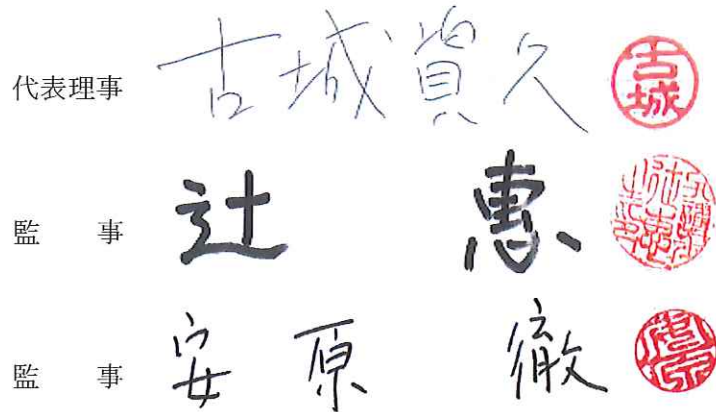 代表理事 古城資久 古城
監事 辻惠
監事 安原徹